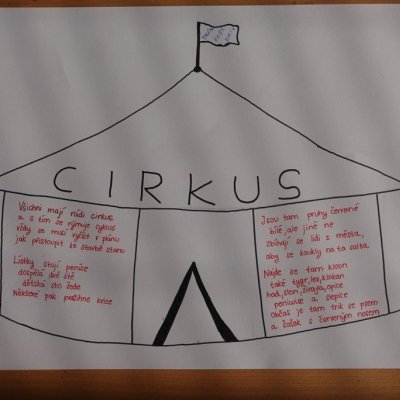 CIRKUS
Všichni mají rádi cirkus
a s tím se rýmuje cyklus
vždy se musí vyčíst v plánu
jak přistoupit ke stavbě stanu
Lístky stojí peníze
dospělá dvě stě
dětská sto šede
Některé pak postihne krize
Jsou tam pruhy červené
bílé, ale jiné ne
Zbíhají se lidi z města,
aby se koukly na ta salta.
Najde se tam klaun
také tygr, lev, klokan
had, slon, žirafa, opice
penivise a slepice
Občas je tam trik se psem
a šašek s červeným nosem